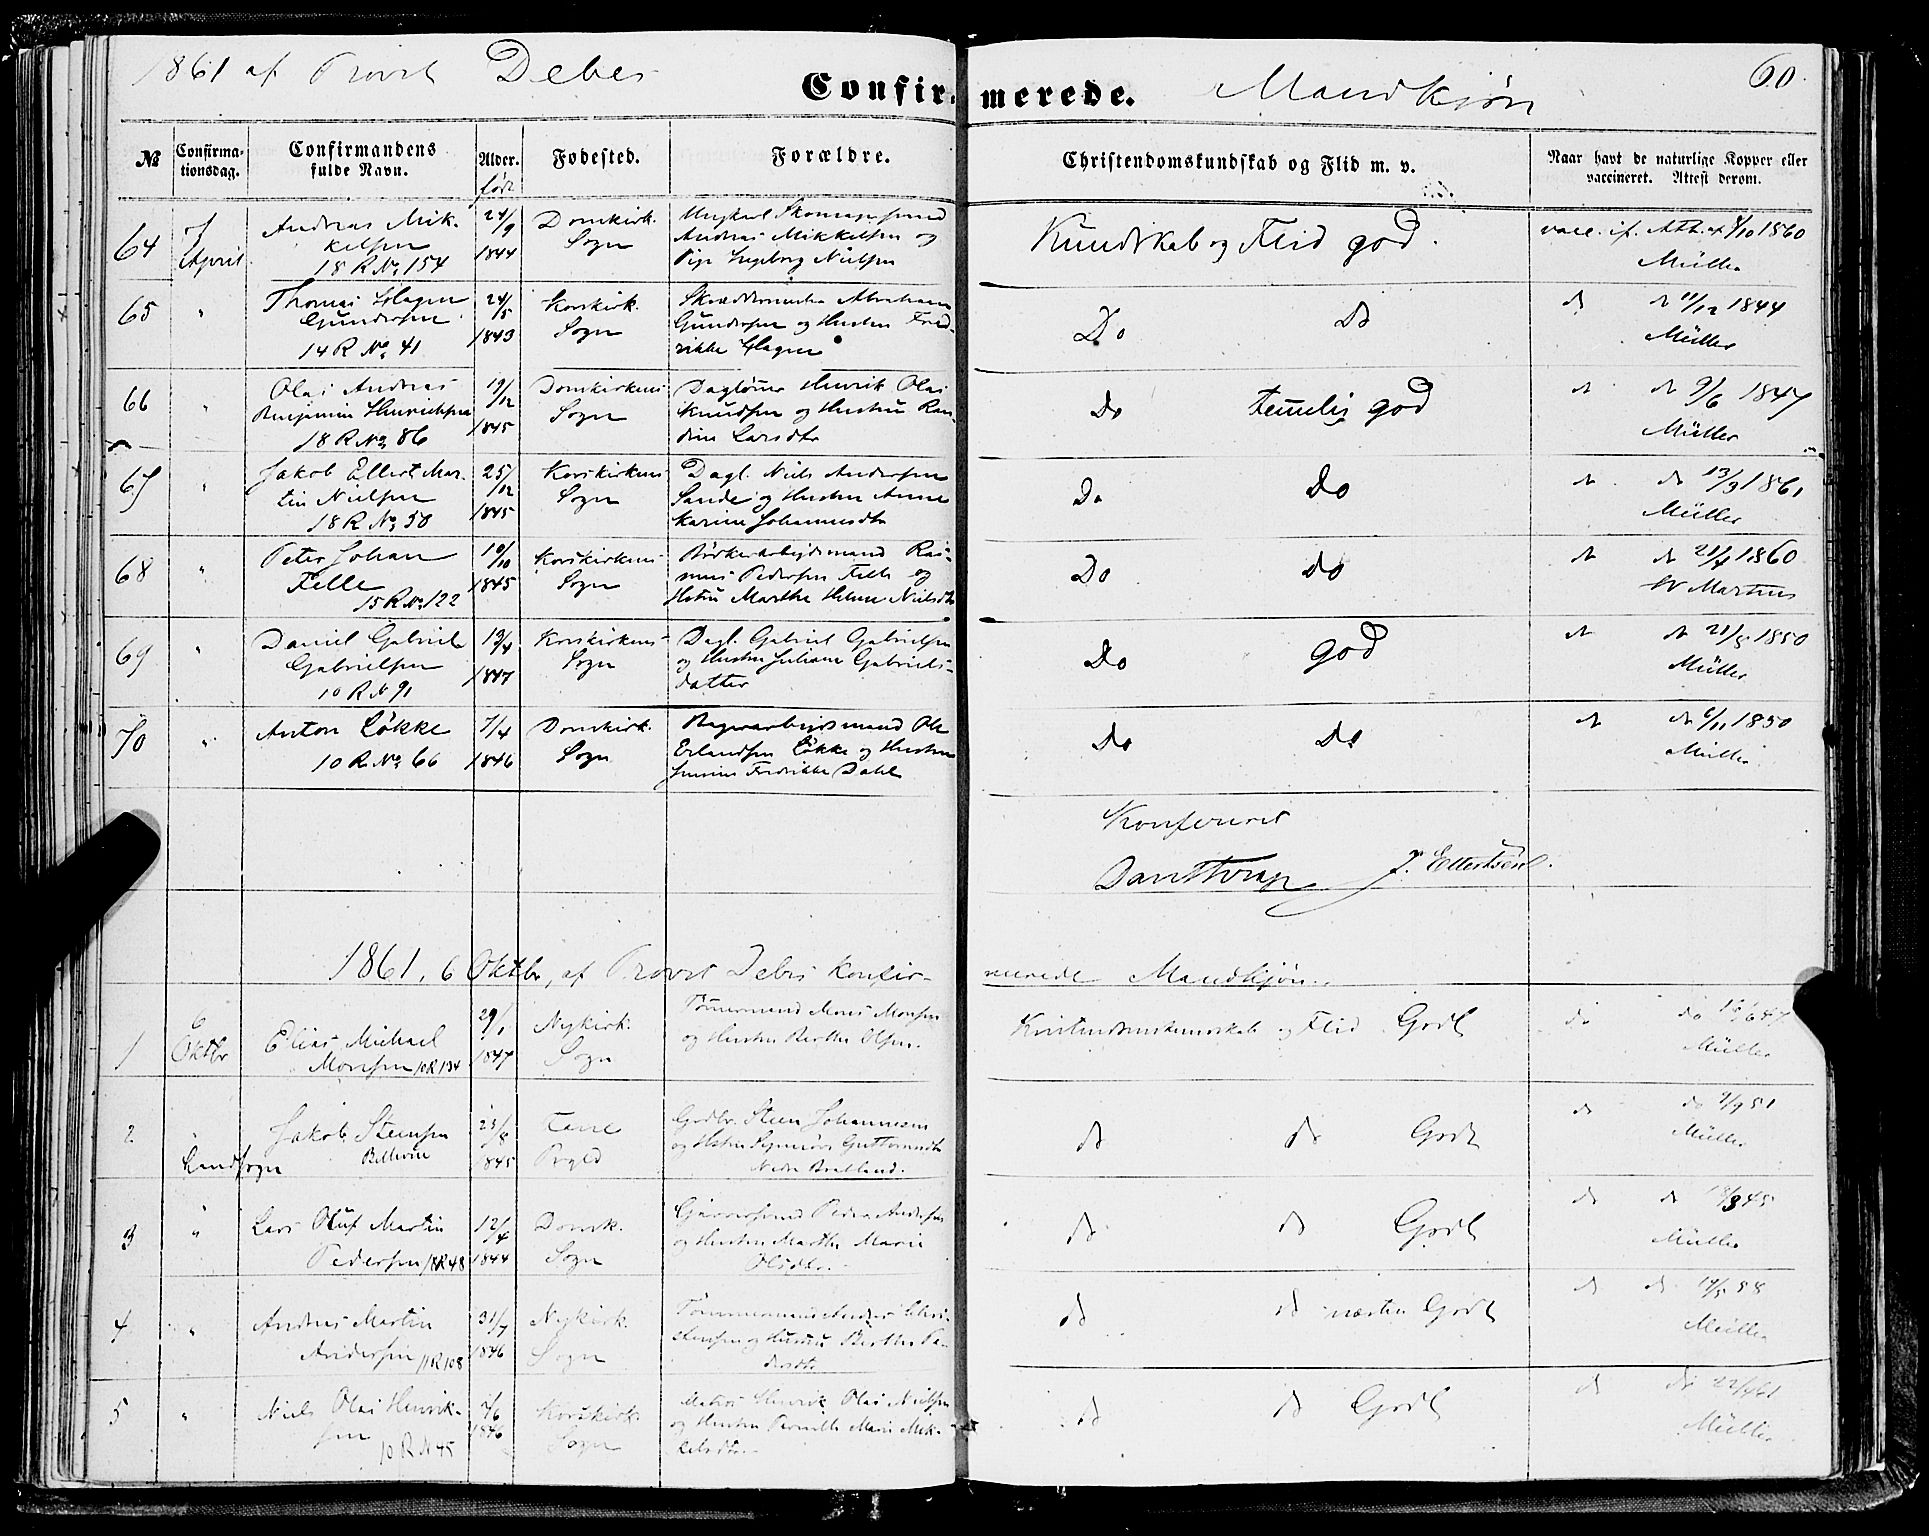 1861 af Provst Debes
Confirmerede.
Mandkjøn
60.
№
Confirma-
tionsdag.
Confirmandens
fulde Navn.
Alder.
født
Fødested.
Forældre.
Christendomskundskab og Flid m. v.
Naar havt de naturlige Kopper eller
vaccineret. Attest derom.
64
7 April
Andreas Mik-
kelsen
18 R No 154
24/9
1844
Domkirk.
Sogn
Ungkarl Skomagersvend
Andreas Mikkelsen og
Pige Ingeborg Nielsen
Kundskab og Flid god.
vacc. if. Att. af 8/10 1860
Müller
65
"
Thomas Hagen
Gundersen
14 R No 41
24/5
1843
Korskirk.
Sogn
Skræddermester Abraham
Gundersen og Hustru Fred-
rikke Hagen
Do Do
d d 11/12 1844
Müller
66
"
Olai Andreas
Benjamin Henriksen
18 R No 86
19/12
1845
Domkirkens
Sogn
Dagløner Henrik Olai
Knudsen og Hustru Ran-
dine Larsdtr
Do temmelig god
d d 9/6 1847
Müller
67
"
Jakob Ellert Mar-
tin Nielsen
18 R No 50
25/12
1845
Korskirkens
Sogn
Dagl. Niels Andersen
Sande og Hustru Anne
Karine Johannesdtr
Do do
d do 13/3 1861
Müller
68
"
Peter Johan
Felle
15 R No 122
10/10
1845
Korskirkens
Sogn
Bødkerarbejdsmand Ras-
mus Pedersen Felle og
Hstru Marthe Helene Nielsdtr
Do do
d d 21/4 1860
W Martens
69
"
Daniel Gabriel
Gabrielsen
10 R N 91
19/4
1847
Korskirkens
Sogn
Dagl. Gabriel Gabrielsen
og Hustru Juliane Gabriels-
datter
Do god
d d 21/5 1850
Müller
70
"
Anton Løkke
10 R No 66
7/4
1846
Domkirk.
Sogn
Bagerarbejdsmand Ole
Erlandsen Løkke og Hustru
Fredrikke Dahl
Do Do
d d 6/11 1850
Müller
Konfereret
J. Ellertsen.
1861, 6 Oktbr, af Provst Debes Konfir-
merede Mandkjøn.
1
6
Oktbr
Elias Michael
Monsen 10 R 134
29/1
1847
Nykirk.
Sogn
Tømmermand Mons Monsen
og Hustru Berthe Olsen.
Kristendomskundskab og Flid Godt
do do 16/6 47
Müller
2
"
Landsogn
Jakob Steensen
23/8
1845
Fane
Prgld
Grdbr. Steen Johannesen
og Hstru Synnøve Guttormsdtr
Nedre Bratland.
d d Godt
do do 9/9 51
Müller
3
"
Lars Oluf Martin
Pedersen 18 R 48
12/4
1844
Domk.
Sogn
Garversvend Peder Andersen
og Hustru Marthe Marie
Olsdtr.
d d Godt
d d 18/3 45
Müller
4
"
Andreas Martin
Andersen 11 R 108
31/7
1846
Nykirk.
Sogn
Tømmermand Anders Chri-
stensen og Hustru Berthe Pe-
dersdtr
d d næsten Godt
d d 14/5 58
Müller
5
"
Niels Olai Henrik-
sen
10 R N 45
4/6
1846
Korskirk.
Sogn
Matros Henrik Olai Nielsen
og Hustru Pernille Marie Mik-
kelsdtr
d d Godt
d do 22/4 61
Müller